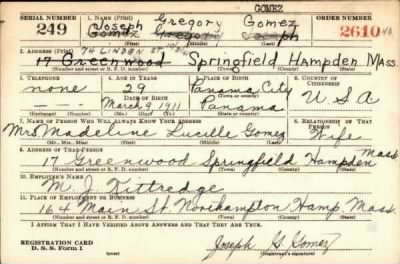 GOMEZ
SERIAL NUMBER 1. NAME (Print) ORDER NUMBER
Joseph Gregory Gomez
249 Gomez Gregory Joseph 2610
(First) (Middle) (Last)
2. ADDRESS (Print) 74 LINDEN ST
17 Greenwood Springfield Hampden Mass.
(Number and street or R. F. D. number) (Town) (County) (State)
3. TELEPHONE 4. AGE IN YEARS 5. PLACE OF BIRTH 6. COUNTRY OF CITIZENSHIP
none 29 Panama City U S A
DATE OF BIRTH (Town or county)
March 9, 1911 Panama
(Exchange) (Number) (Mo.) (Day) (Yr.) (State or country)
7. NAME OF PERSON WHO WILL ALWAYS KNOW YOUR ADDRESS 8. RELATIONSHIP OF THAT PERSON
Mrs Madeline Lucille Gomez Wife
(Mr., Mrs., Miss) (First) (Middle) (Last)
9. ADDRESS OF THAT PERSON
17 Greenwood Springfield Hampden Mass
(Number and street or R. F. D. number) (Town) (County) (State)
10. EMPLOYER'S NAME
M. J. Kittredge
11. PLACE OF EMPLOYMENT OR BUSINESS
164 Main St. Northampton Hamp Mass.
(Number and street or R. F. D. number) (Town) (County) (State)
I AFFIRM THAT I HAVE VERIFIED ABOVE ANSWERS AND THAT THEY ARE TRUE.
REGISTRATION CARD
D. S. S. Form 1
Joseph G. Gomez
(Registrant's signature)